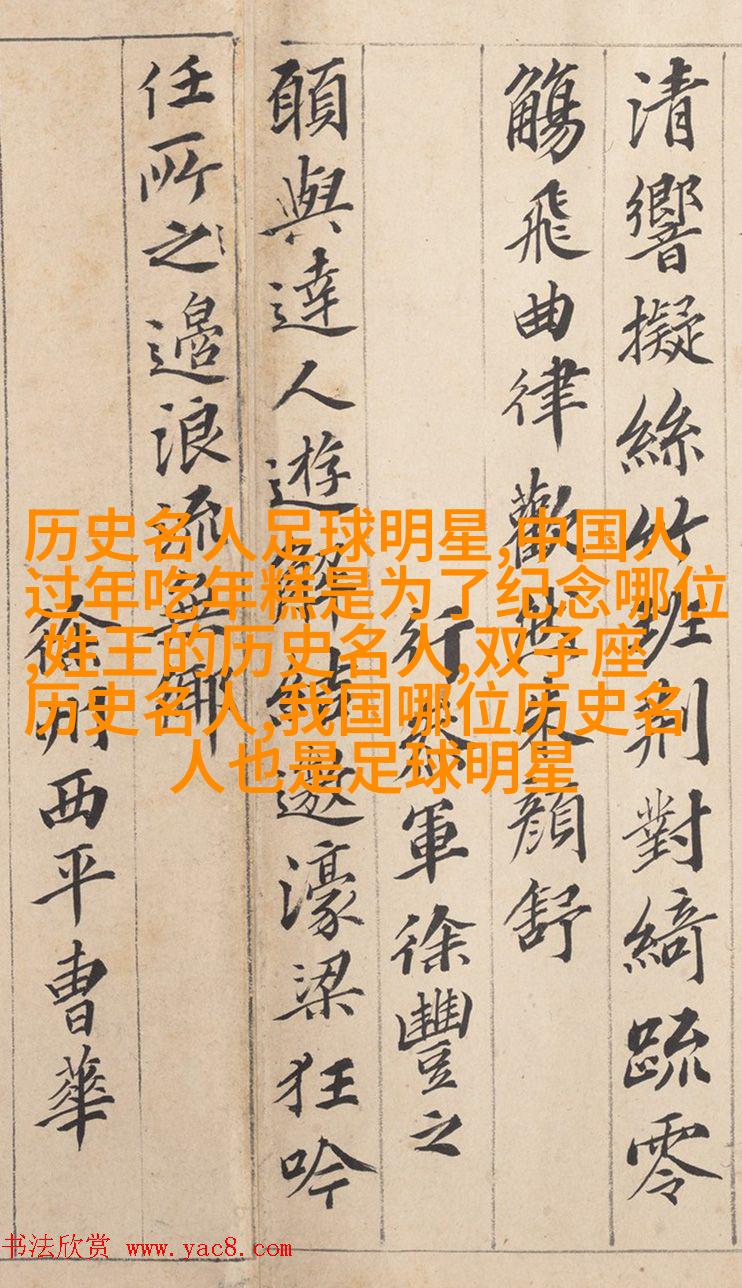 清響擬絲竹班荊對綺疏零
觴飛曲律歡然朱顔舒
行叅軍徐豐之
願與達人遊解結遨濠梁狂吟
任所之邊浪流無
徐州西平曹華
历史名人足球明星,中国人
过年吃年糕是为了纪念哪位
,姓王的历史名人,双子座
历史名人,我国哪位历史名
人也是足球明星
书法欣赏 www.yac8.com